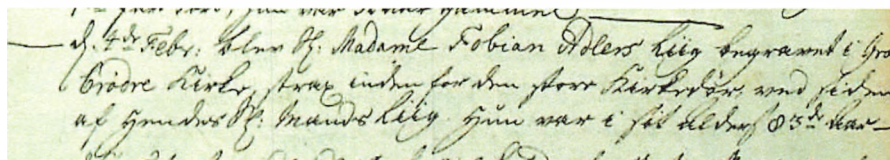 hun var
d. 4de Febr: blev Sl: Madame Fobian Adlers Liig begravet i Gra
brødre Kirke, strax inden for den store Kirkedør ved siden
af Hendes Sl: Mands Liig. Hun var i sit alders 83de aar —